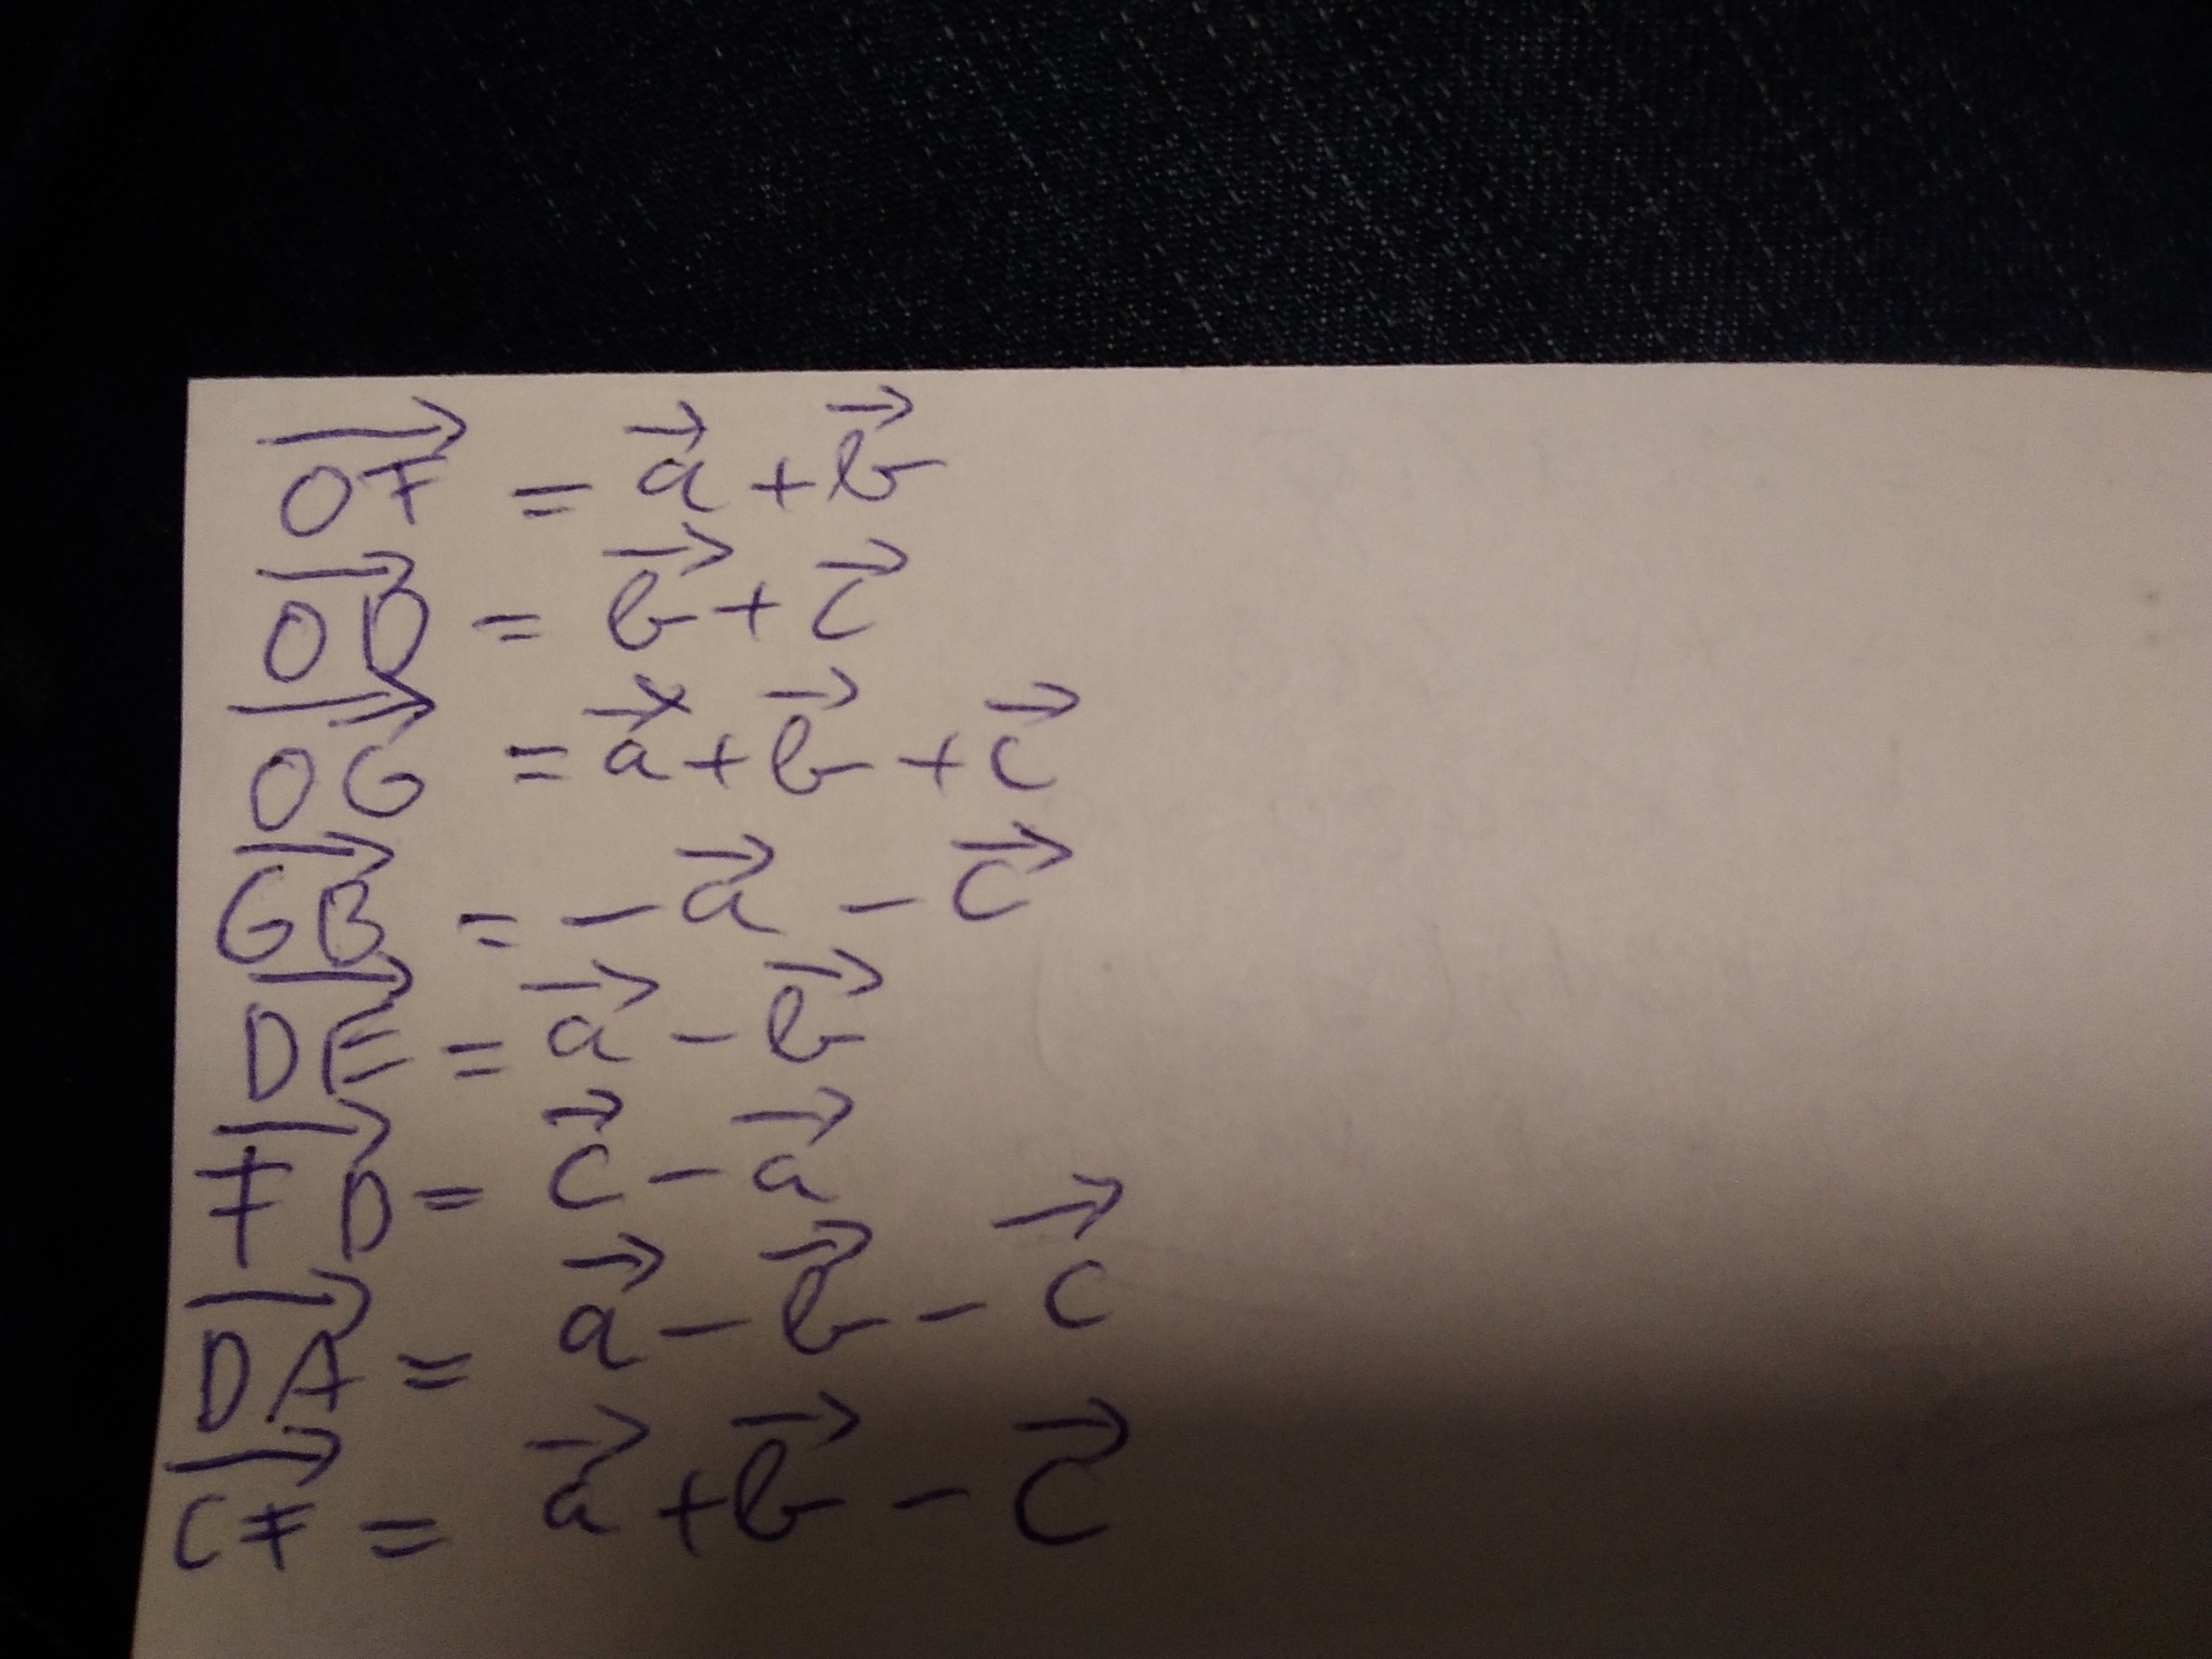 $\overrightarrow{OF} = \vec{a} + \vec{b}$
$\overrightarrow{OD} = \vec{b} + \vec{c}$
$\overrightarrow{OG} = \vec{a} + \vec{b} + \vec{c}$
$\overrightarrow{GB} = -\vec{a} - \vec{c}$
$\overrightarrow{DE} = \vec{a} - \vec{b}$
$\overrightarrow{FD} = \vec{c} - \vec{a}$
$\overrightarrow{DA} = \vec{a} - \vec{b} - \vec{c}$
$\overrightarrow{CF} = \vec{a} + \vec{b} - \vec{c}$